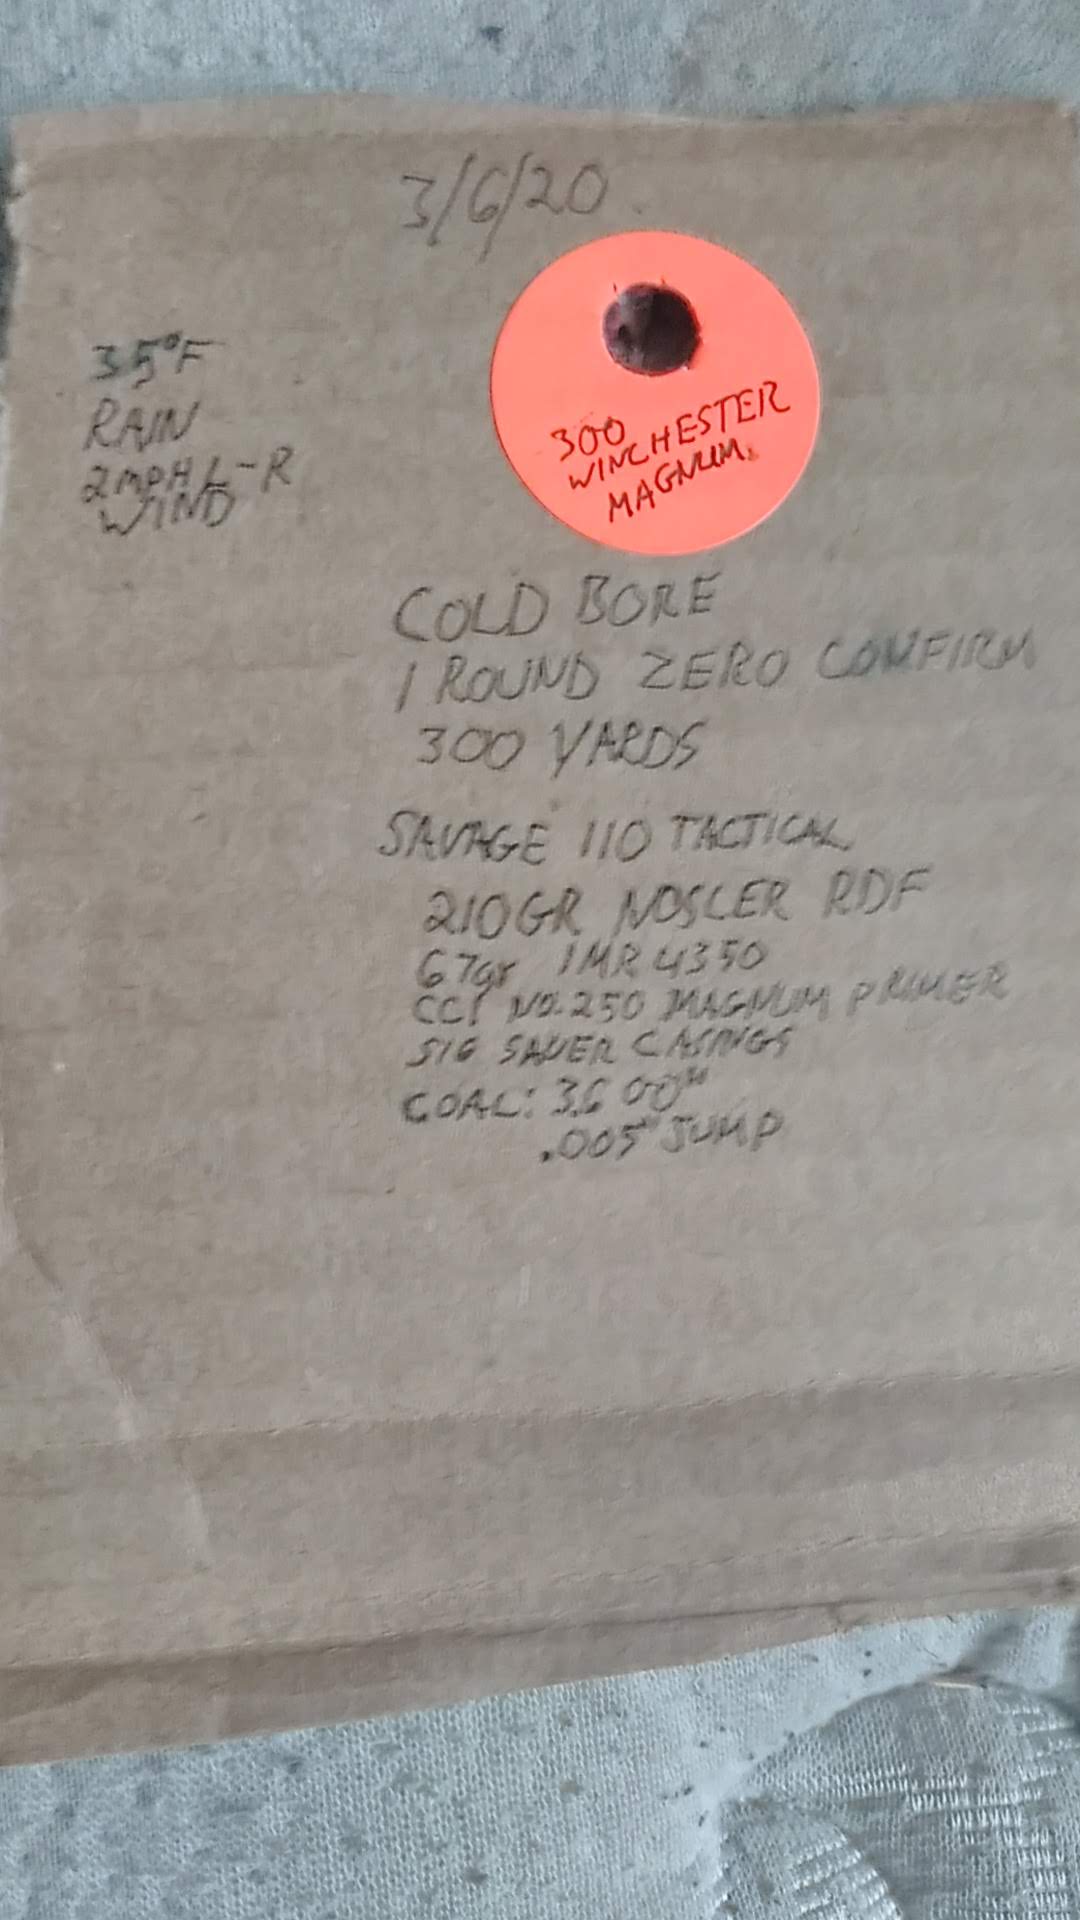 3/6/20
35°F
RAIN
2mpH L-R
WIND
300
WINCHESTER
MAGNUM.
COLD BORE
1 ROUND ZERO CONFIRM
300 YARDS
SAVAGE 110 TACTICAL
210GR NOSLER RDF
67gr IMR 4350
CCI NO. 250 MAGNUM PRIMER
SIG SAUER CASINGS
COAL: 3.600"
.005" JUMP